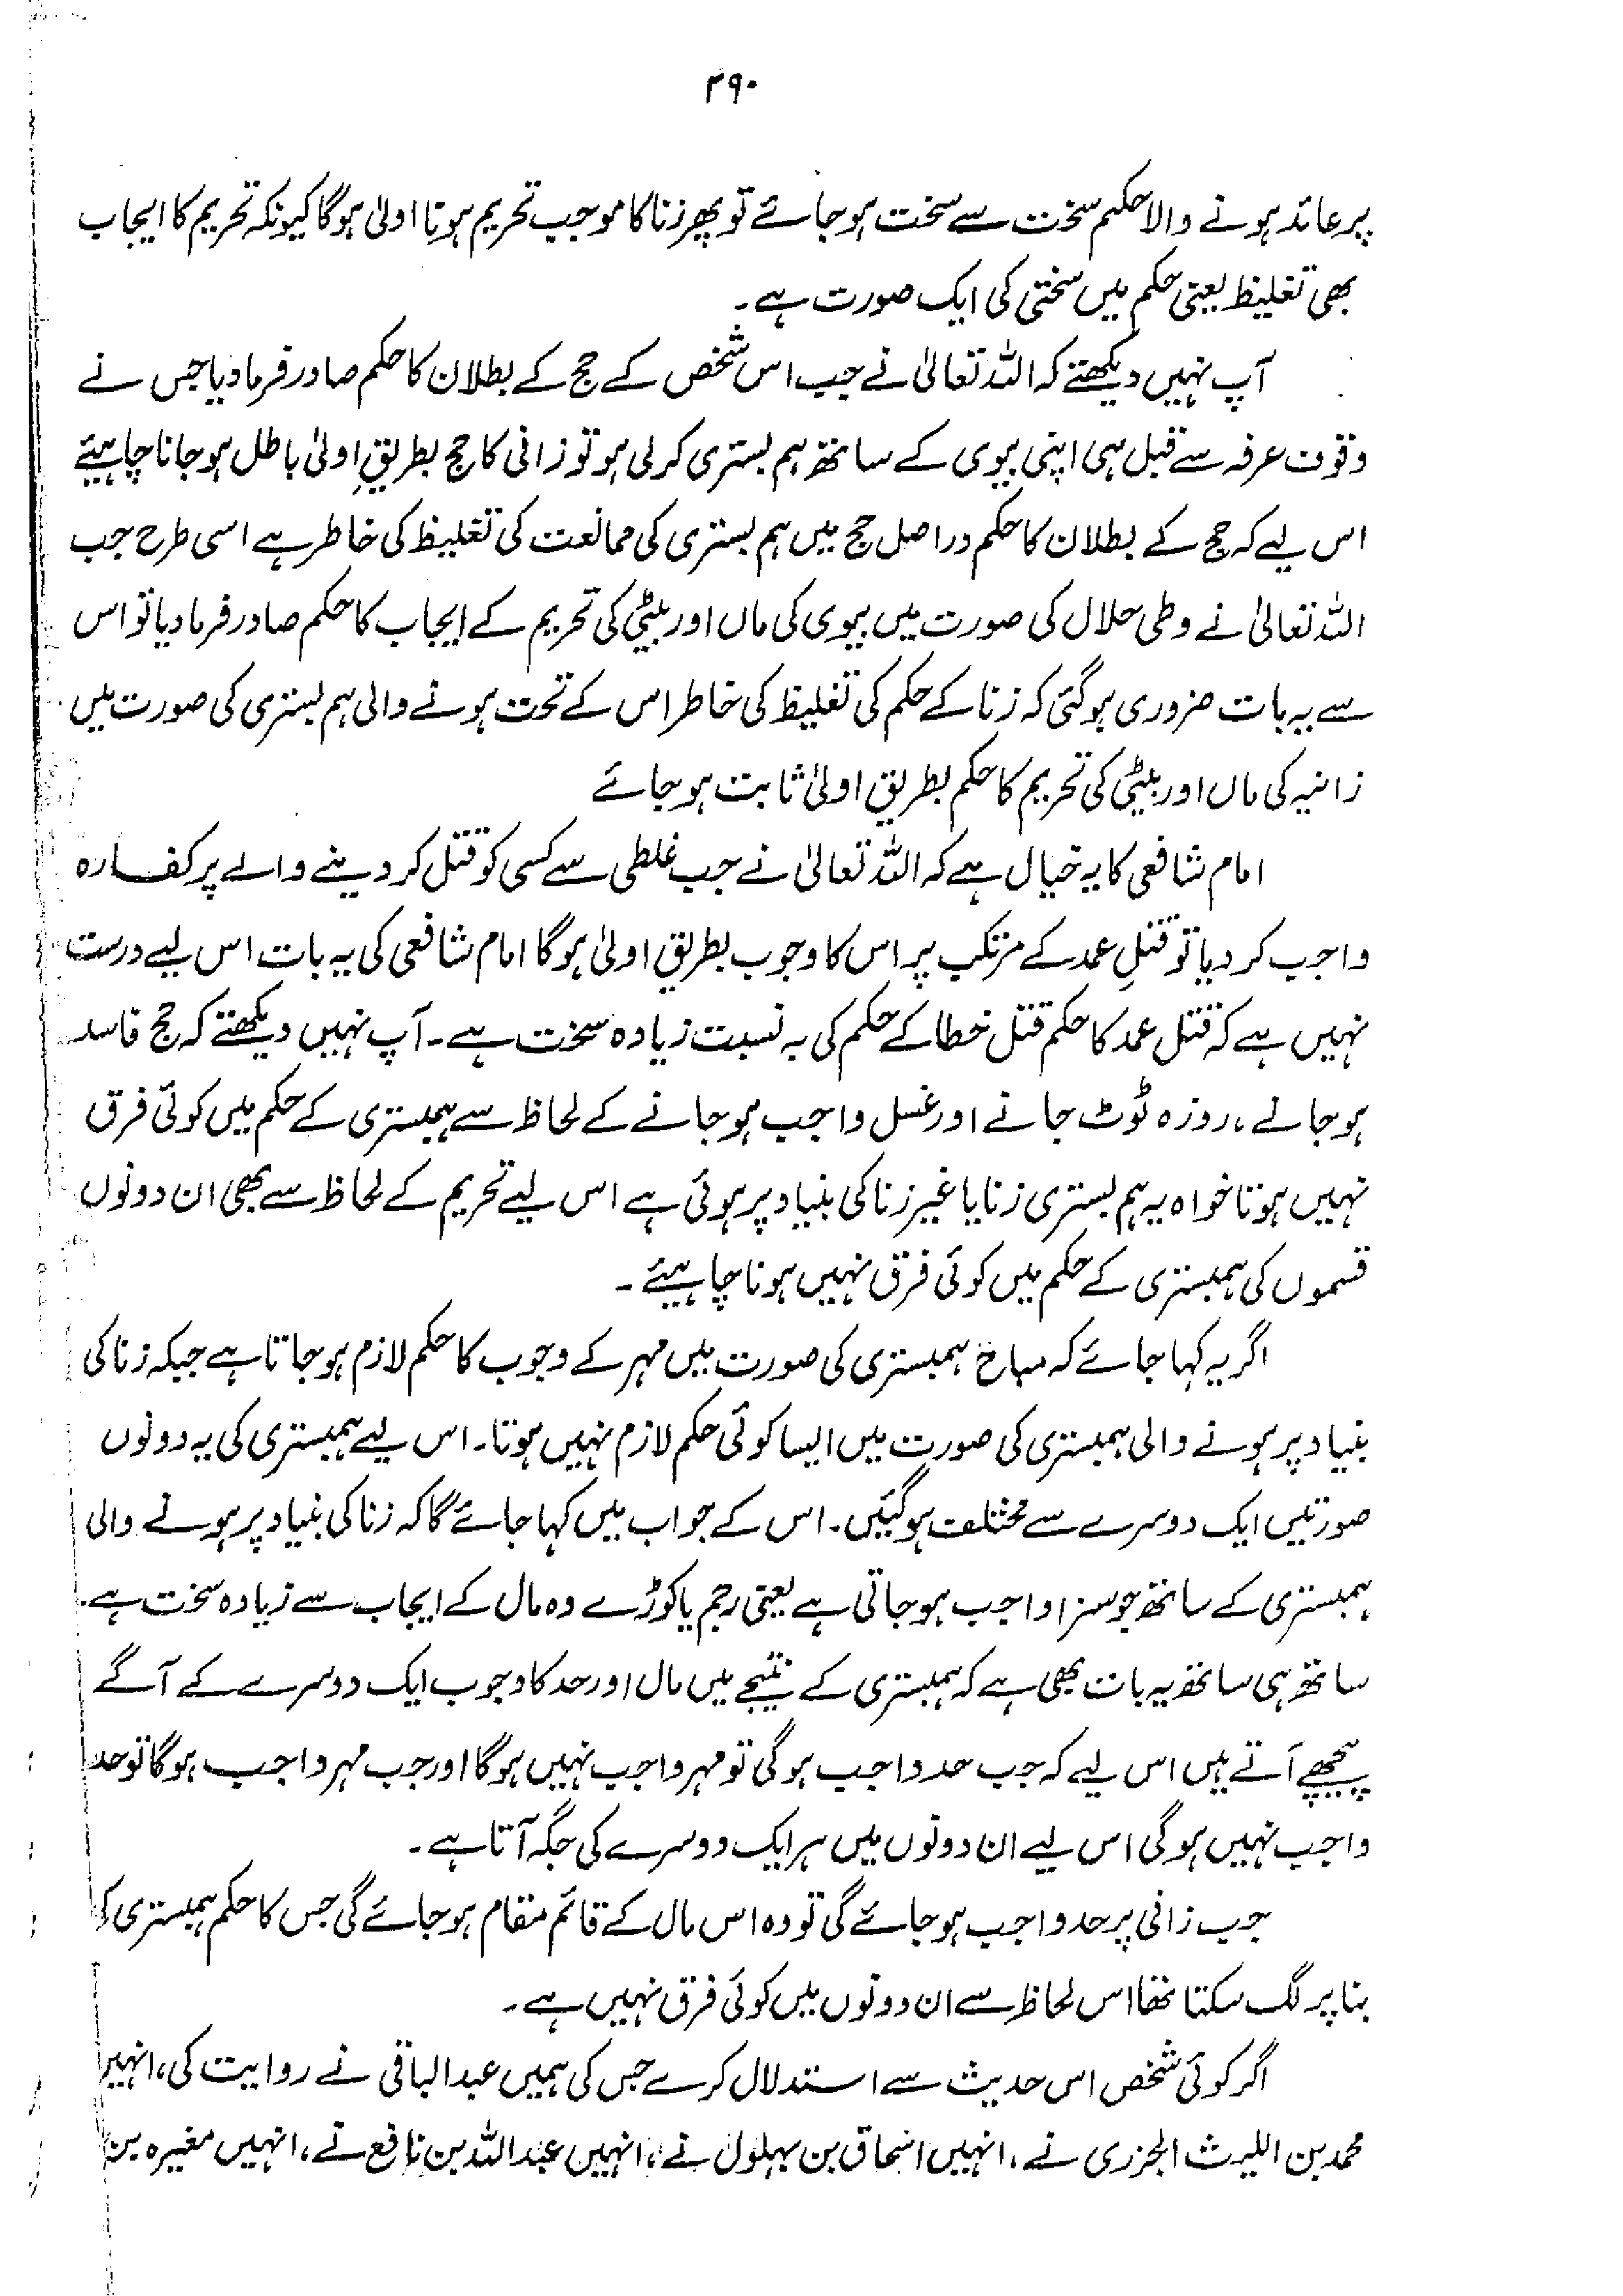 ۳۹۰
پر عائد ہونے والا حکم سخت سے سخت ہو جائے تو پھر زنا کا موجب تحریم ہونا اولیٰ ہوگا کیونکہ تحریم کا ایجاب
بھی تغلیظ یعنی حکم میں سختی کی ایک صورت ہے۔
آپ نہیں دیکھتے کہ اللہ تعالیٰ نے جب اس شخص کے حج کے بطلان کا حکم صادر فرما دیا جس نے
وقوف عرفہ سے قبل ہی اپنی بیوی کے ساتھ ہم بستری کرلی ہو تو زانی کا حج بطریقِ اولیٰ باطل ہو جانا چاہیئے
اس لیے کہ حج کے بطلان کا حکم دراصل حج میں ہم بستری کی ممانعت کی تغلیظ کی خاطر ہے اسی طرح جب
اللہ تعالیٰ نے وطی حلال کی صورت میں بیوی کی ماں اور بیٹی کی تحریم کے ایجاب کا حکم صادر فرما دیا تو اس
سے یہ بات ضروری ہوگئی کہ زنا کے حکم کی تغلیظ کی خاطر اس کے تحت ہونے والی ہم بستری کی صورت میں
زانیہ کی ماں اور بیٹی کی تحریم کا حکم بطریق اولیٰ ثابت ہو جائے
امام شافعی کا یہ خیال ہے کہ اللہ تعالیٰ نے جب غلطی سے کسی کو قتل کر دینے والے پر کفارہ
واجب کر دیا تو قتلِ عمد کے مرتکب پر اس کا وجوب بطریق اولیٰ ہوگا امام شافعی کی یہ بات اس لیے درست
نہیں ہے کہ قتل عمد کا حکم قتل خطا کے حکم کی بہ نسبت زیادہ سخت ہے۔ آپ نہیں دیکھتے کہ حج فاسد
ہو جانے، روزہ ٹوٹ جانے اور غسل واجب ہو جانے کے لحاظ سے ہمبستری کے حکم میں کوئی فرق
نہیں ہوتا خواہ یہ ہم بستری زنا یا غیر زنا کی بنیاد پر ہوئی ہے اس لیے تحریم کے لحاظ سے بھی ان دونوں
قسموں کی ہمبستری کے حکم میں کوئی فرق نہیں ہونا چاہیئے۔
اگر یہ کہا جائے کہ مباح ہمبستری کی صورت میں مہر کے وجوب کا حکم لازم ہو جاتا ہے جبکہ زنا کی
بنیاد پر ہونے والی ہمبستری کی صورت میں ایسا کوئی حکم لازم نہیں ہوتا۔ اس لیے ہمبستری کی یہ دونوں
صورتیں ایک دوسرے سے مختلف ہوگئیں۔ اس کے جواب میں کہا جائے گا کہ زنا کی بنیاد پر ہونے والی
ہمبستری کے ساتھ جو سزا واجب ہو جاتی ہے یعنی رجم یا کوڑے وہ مال کے ایجاب سے زیادہ سخت ہے۔
ساتھ ہی ساتھ یہ بات بھی ہے کہ ہمبستری کے نتیجے میں مال اور حد کا وجوب ایک دوسرے کے آگے
پیچھے آتے ہیں اس لیے کہ جب حد واجب ہوگی تو مہر واجب نہیں ہوگا اور جب مہر واجب ہوگا تو حد
واجب نہیں ہوگی اس لیے ان دونوں میں ہر ایک دوسرے کی جگہ آتا ہے۔
جب زانی پر حد واجب ہو جائے گی تو وہ اس مال کے قائم مقام ہو جائے گی جس کا حکم ہمبستری کی
بنا پر لگ سکتا تھا اس لحاظ سے ان دونوں میں کوئی فرق نہیں ہے۔
اگر کوئی شخص اس حدیث سے استدلال کرے جس کی ہمیں عبدالباقی نے روایت کی، انہیں
محمد بن اللیث الجزری نے، انہیں اسحاق بن بہلول نے، انہیں عبداللہ بن نافع نے، انہیں مغیرہ بن